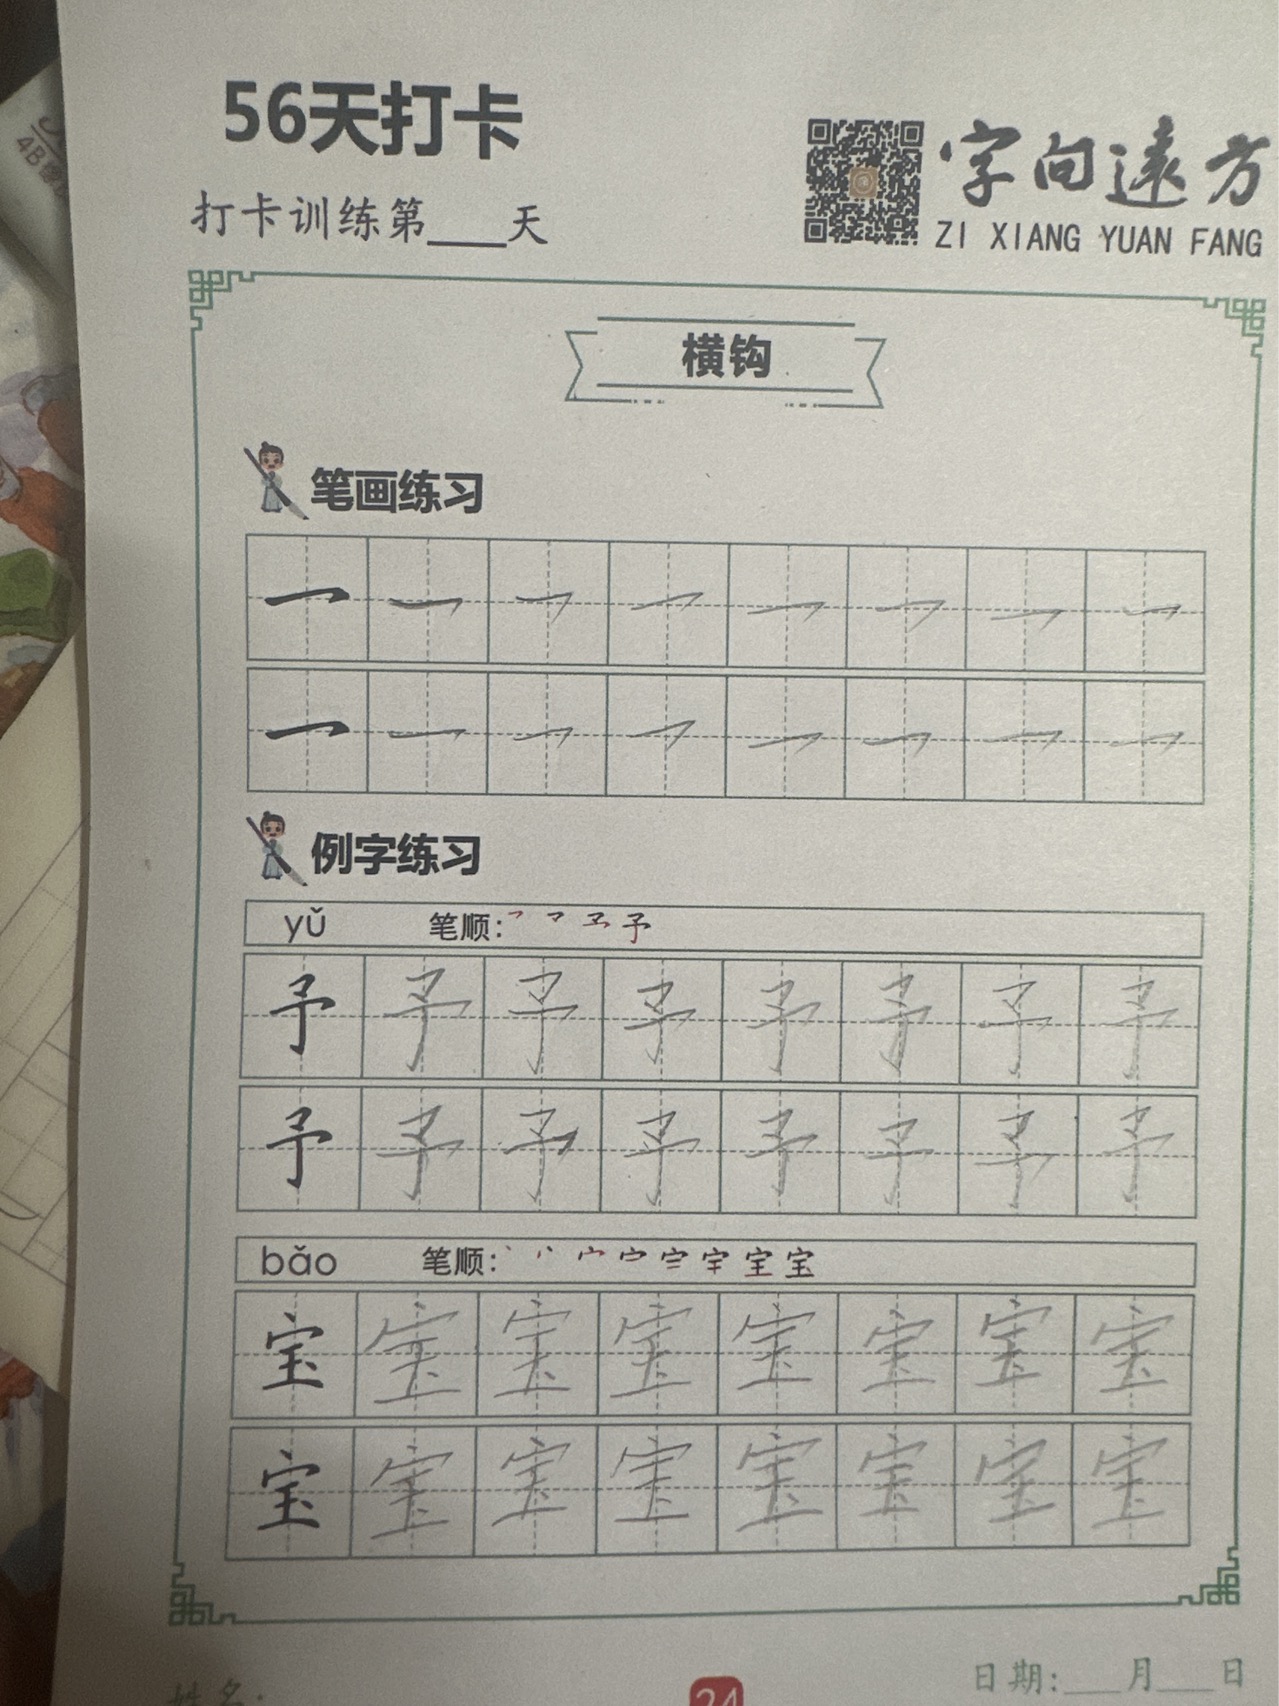 4B
56天打卡
字向遠方
打卡训练第___天
ZI XIANG YUAN FANG
横钩
笔画练习
例字练习
yǔ 笔顺: 予
予 予 予 予 予 予 予 予
予 予 予 予 予 予 予 予
bǎo 笔顺: 宝
宝 宝 宝 宝 宝 宝 宝 宝
宝 宝 宝 宝 宝 宝 宝 宝
日期:___月___日
姓名:
24